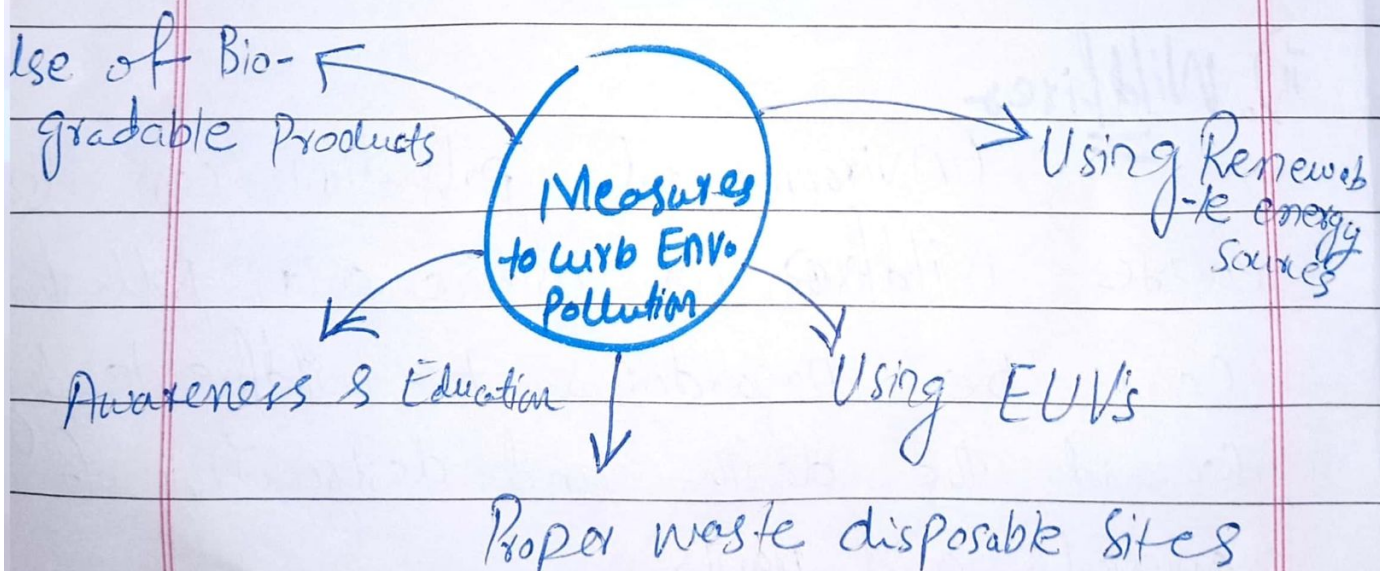 Use of Bio-
gradable Products
Measures
to curb Envo.
Pollution
Using Renewab
-le energy
sources
Awareness & Education
Using EUV's
Proper waste disposable Sites